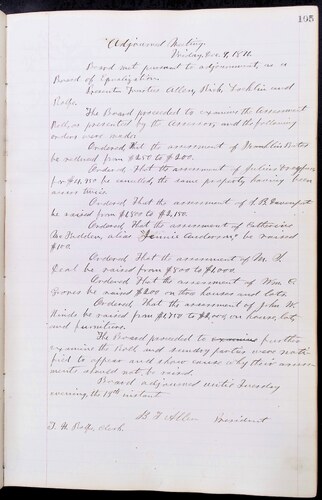 195
Adjourned Meeting
Friday, Dec. 8, 1871.
Board met pursuant to adjournment, as a
Board of Equalization.
Present Trustees Allen, Rich, and
Rolfe.
The Board proceeded to examine the Assessment
Roll as presented by the Assessor, and the following
orders were made:
Ordered that the assessment of Franklin
be reduced from $250 to $200.
Ordered that the assessment of Julius
for $11,175 be cancelled, the same property having been
assessed twice.
Ordered that the assessment of S. B. Davenport
be raised from $1500 to $2,150.
Ordered that the assessment of Catherine
McFadden, alias "Jennie Anderson," be raised
$100.
Ordered that the assessment of M. H.
be raised from $800 to $1000.
Ordered that the assessment of Wm. E.
Groves be raised $200 on two houses and lots.
Ordered that the assessment of John W.
Hinds be raised from $1750 to $2,000, on house, lot,
and furniture.
The Board proceeded to further
examine the Roll and sundry parties were noti-
fied to appear and show cause why their assess-
ments should not be raised.
Board adjourned until Tuesday
evening, the 19th instant.
B. F. Allen President
T. H. Rolfe clerk.